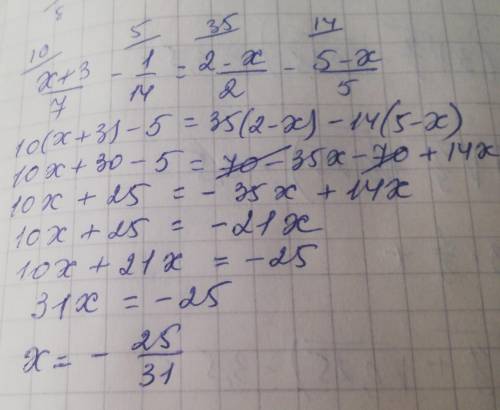 10/ 5/ 35/ 14/
(x+3)/7 - 1/14 = (2-x)/2 - (5-x)/5
10(x+3)-5 = 35(2-x)-14(5-x)
10x+30-5 = 70-35x-70+14x
10x+25 = -35x+14x
10x+25 = -21x
10x+21x = -25
31x = -25
x = - 25/31